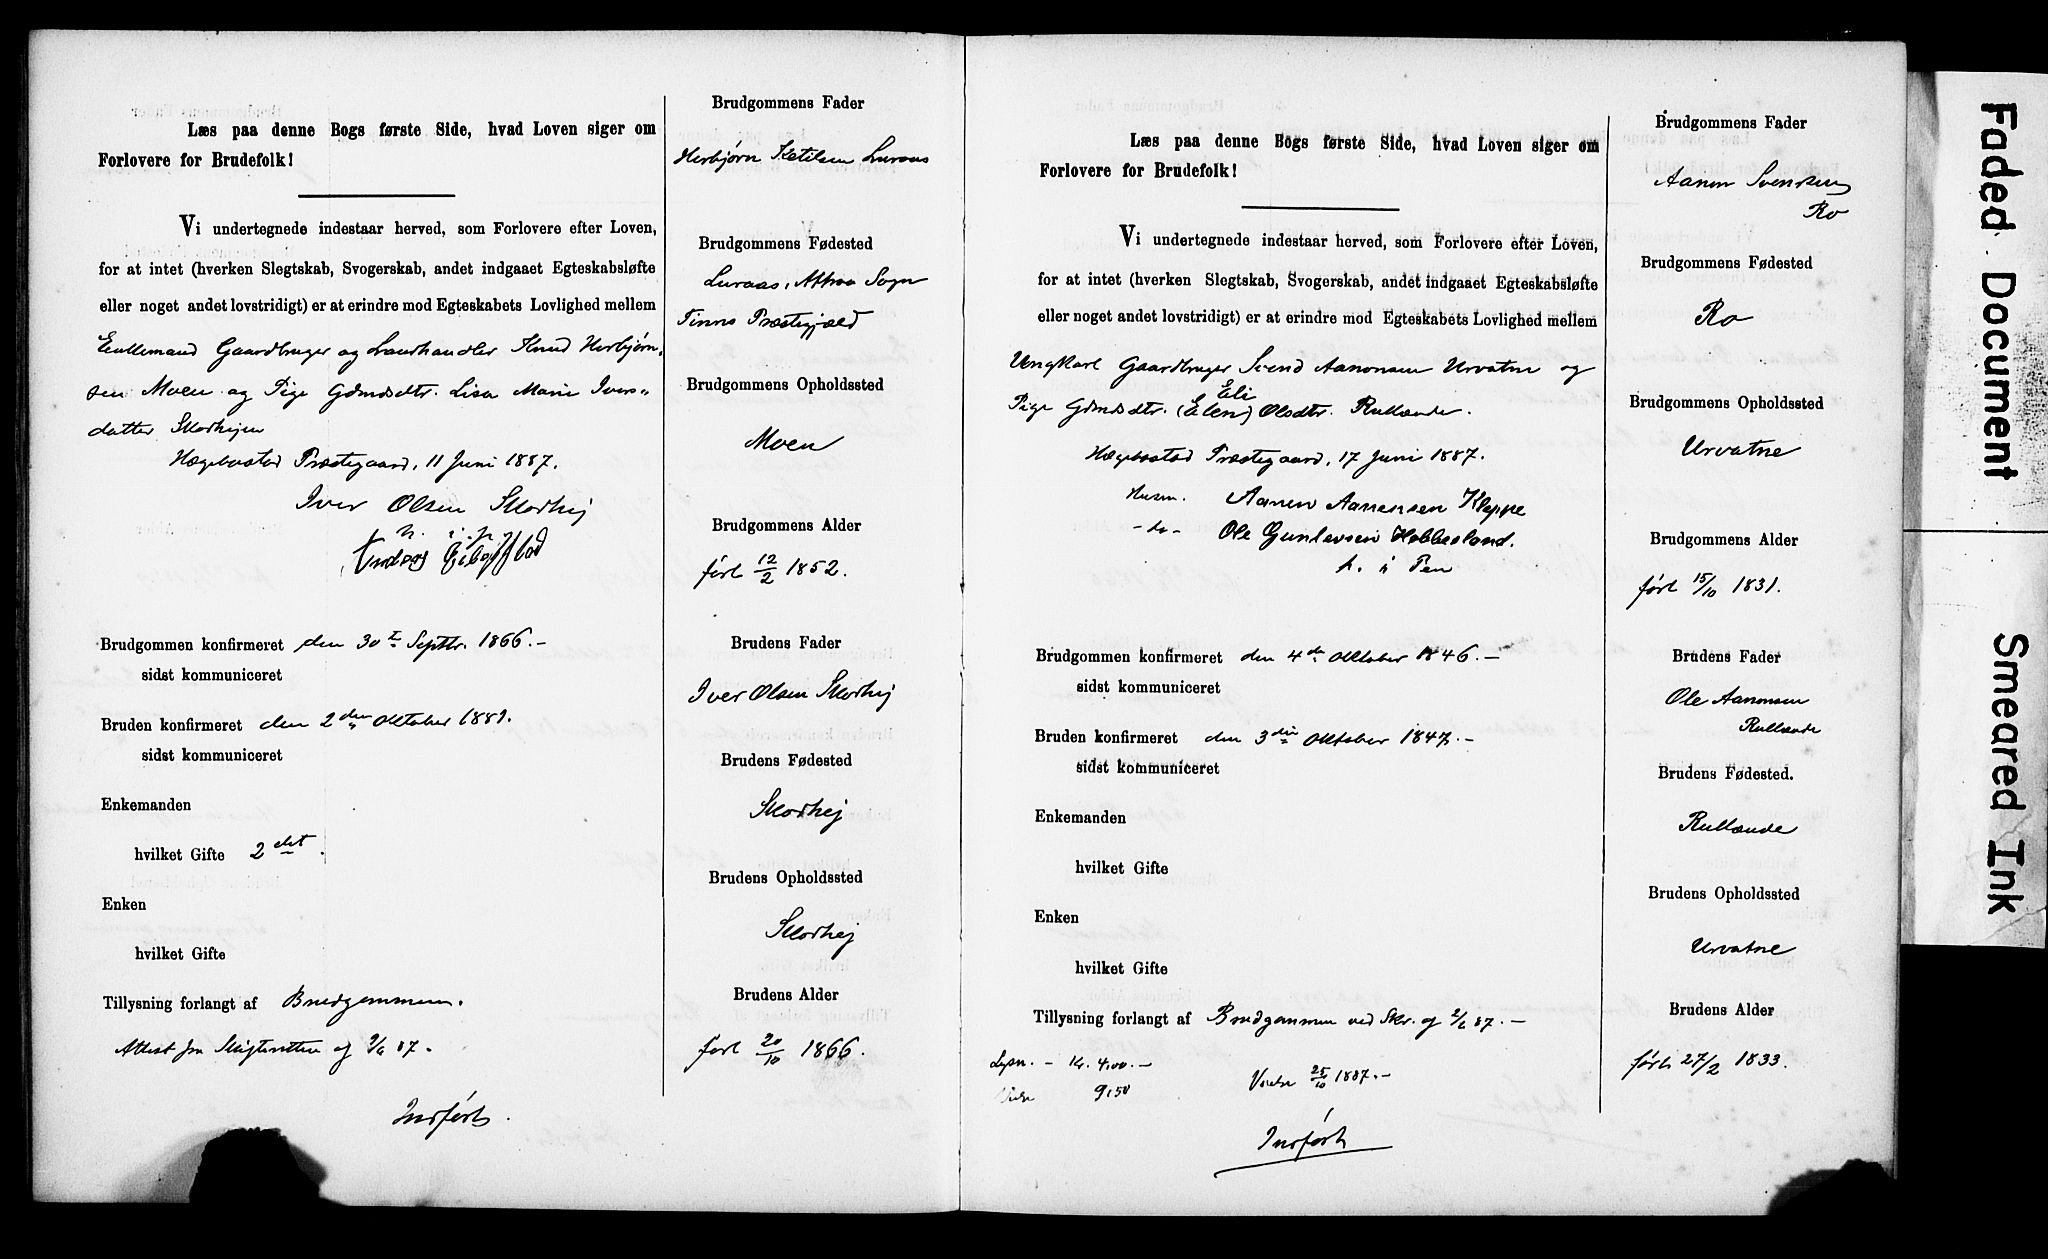 Læs paa denne Bogs første Side, hvad Loven siger om
Forlovere for Brudefolk!
Vi undertegnede indestaar herved, som Forlovere efter Loven,
for at intet (hverken Slegtskab, Svogerskab, andet indgaaet Egteskabsløfte
eller noget andet lovstridigt) er at erindre mod Egteskabets Lovlighed mellem
Enkemand Gaardbruger og Landhandler Knud Herbjørn-
sen Moen og Pige Gdmdsdtr. Lisa Marie Ivers-
datter Skorhej
Hægebostad Præstegaard, 11 Juni 1887.
Iver Olsen Skorhej
m. i. p.
Anders
Brudgommen konfirmeret den 30te Septbr. 1866.-
sidst kommuniceret
Bruden konfirmeret den 2den Oktober 1881.
sidst kommuniceret
Enkemanden
hvilket Gifte 2det.
Enken
hvilket Gifte
Tillysning forlangt af Brudgommen.
Attest fra Skifteretten og 9/6 87.
Indført.
Brudgommens Fader
Herbjørn Ketilsen Luraas
Brudgommens Fødested
Luraas, Attraa Sogn
Tinns Præstegjæld
Brudgommens Opholdssted
Moen
Brudgommens Alder
født 12/2 1852.
Brudens Fader
Iver Olsen Skorhej
Brudens Fødested
Skorhej
Brudens Opholdssted
Skorhej
Brudens Alder
født 20/10 1866.
Læs paa denne Bogs første Side, hvad Loven siger om
Forlovere for Brudefolk!
Vi undertegnede indestaar herved, som Forlovere efter Loven,
for at intet (hverken Slegtskab, Svogerskab, andet indgaaet Egteskabsløfte
eller noget andet lovstridigt) er at erindre mod Egteskabets Lovlighed mellem
Ungkarl Gaardbruger Svend Aanonsen Urvatne og
Eli
Pige Gdmdsdtr. (Elen) Olsdtr. Rullænde.
Hægebostad Præstegaard, 17 Juni 1887.
Husm. Aanen Aanensen Kleppe
- do - Ole Gunlevsen Hobbesland.
m. i Pen
Brudgommen konfirmeret den 4de Oktober 1846.-
sidst kommuniceret
Bruden konfirmeret den 3die Oktober 1847.-
sidst kommuniceret
Enkemanden
hvilket Gifte
Enken
hvilket Gifte
Tillysning forlangt af Brudgommen ved Skr. af 2/6 87.-
Lysn. - Kr. 4,00.-
Vielse 9,50
Viede 25/10 1887.-
Indført
Brudgommens Fader
Aanen Svendsen
Ro
Brudgommens Fødested
Ro
Brudgommens Opholdssted
Urvatne
Brudgommens Alder
født 15/10 1831.
Brudens Fader
Ole Aanonsen
Rullænde
Brudens Fødested.
Rullænde
Brudens Opholdssted
Urvatne
Brudens Alder
født 27/2 1833.
Faded Document
Smeared Ink